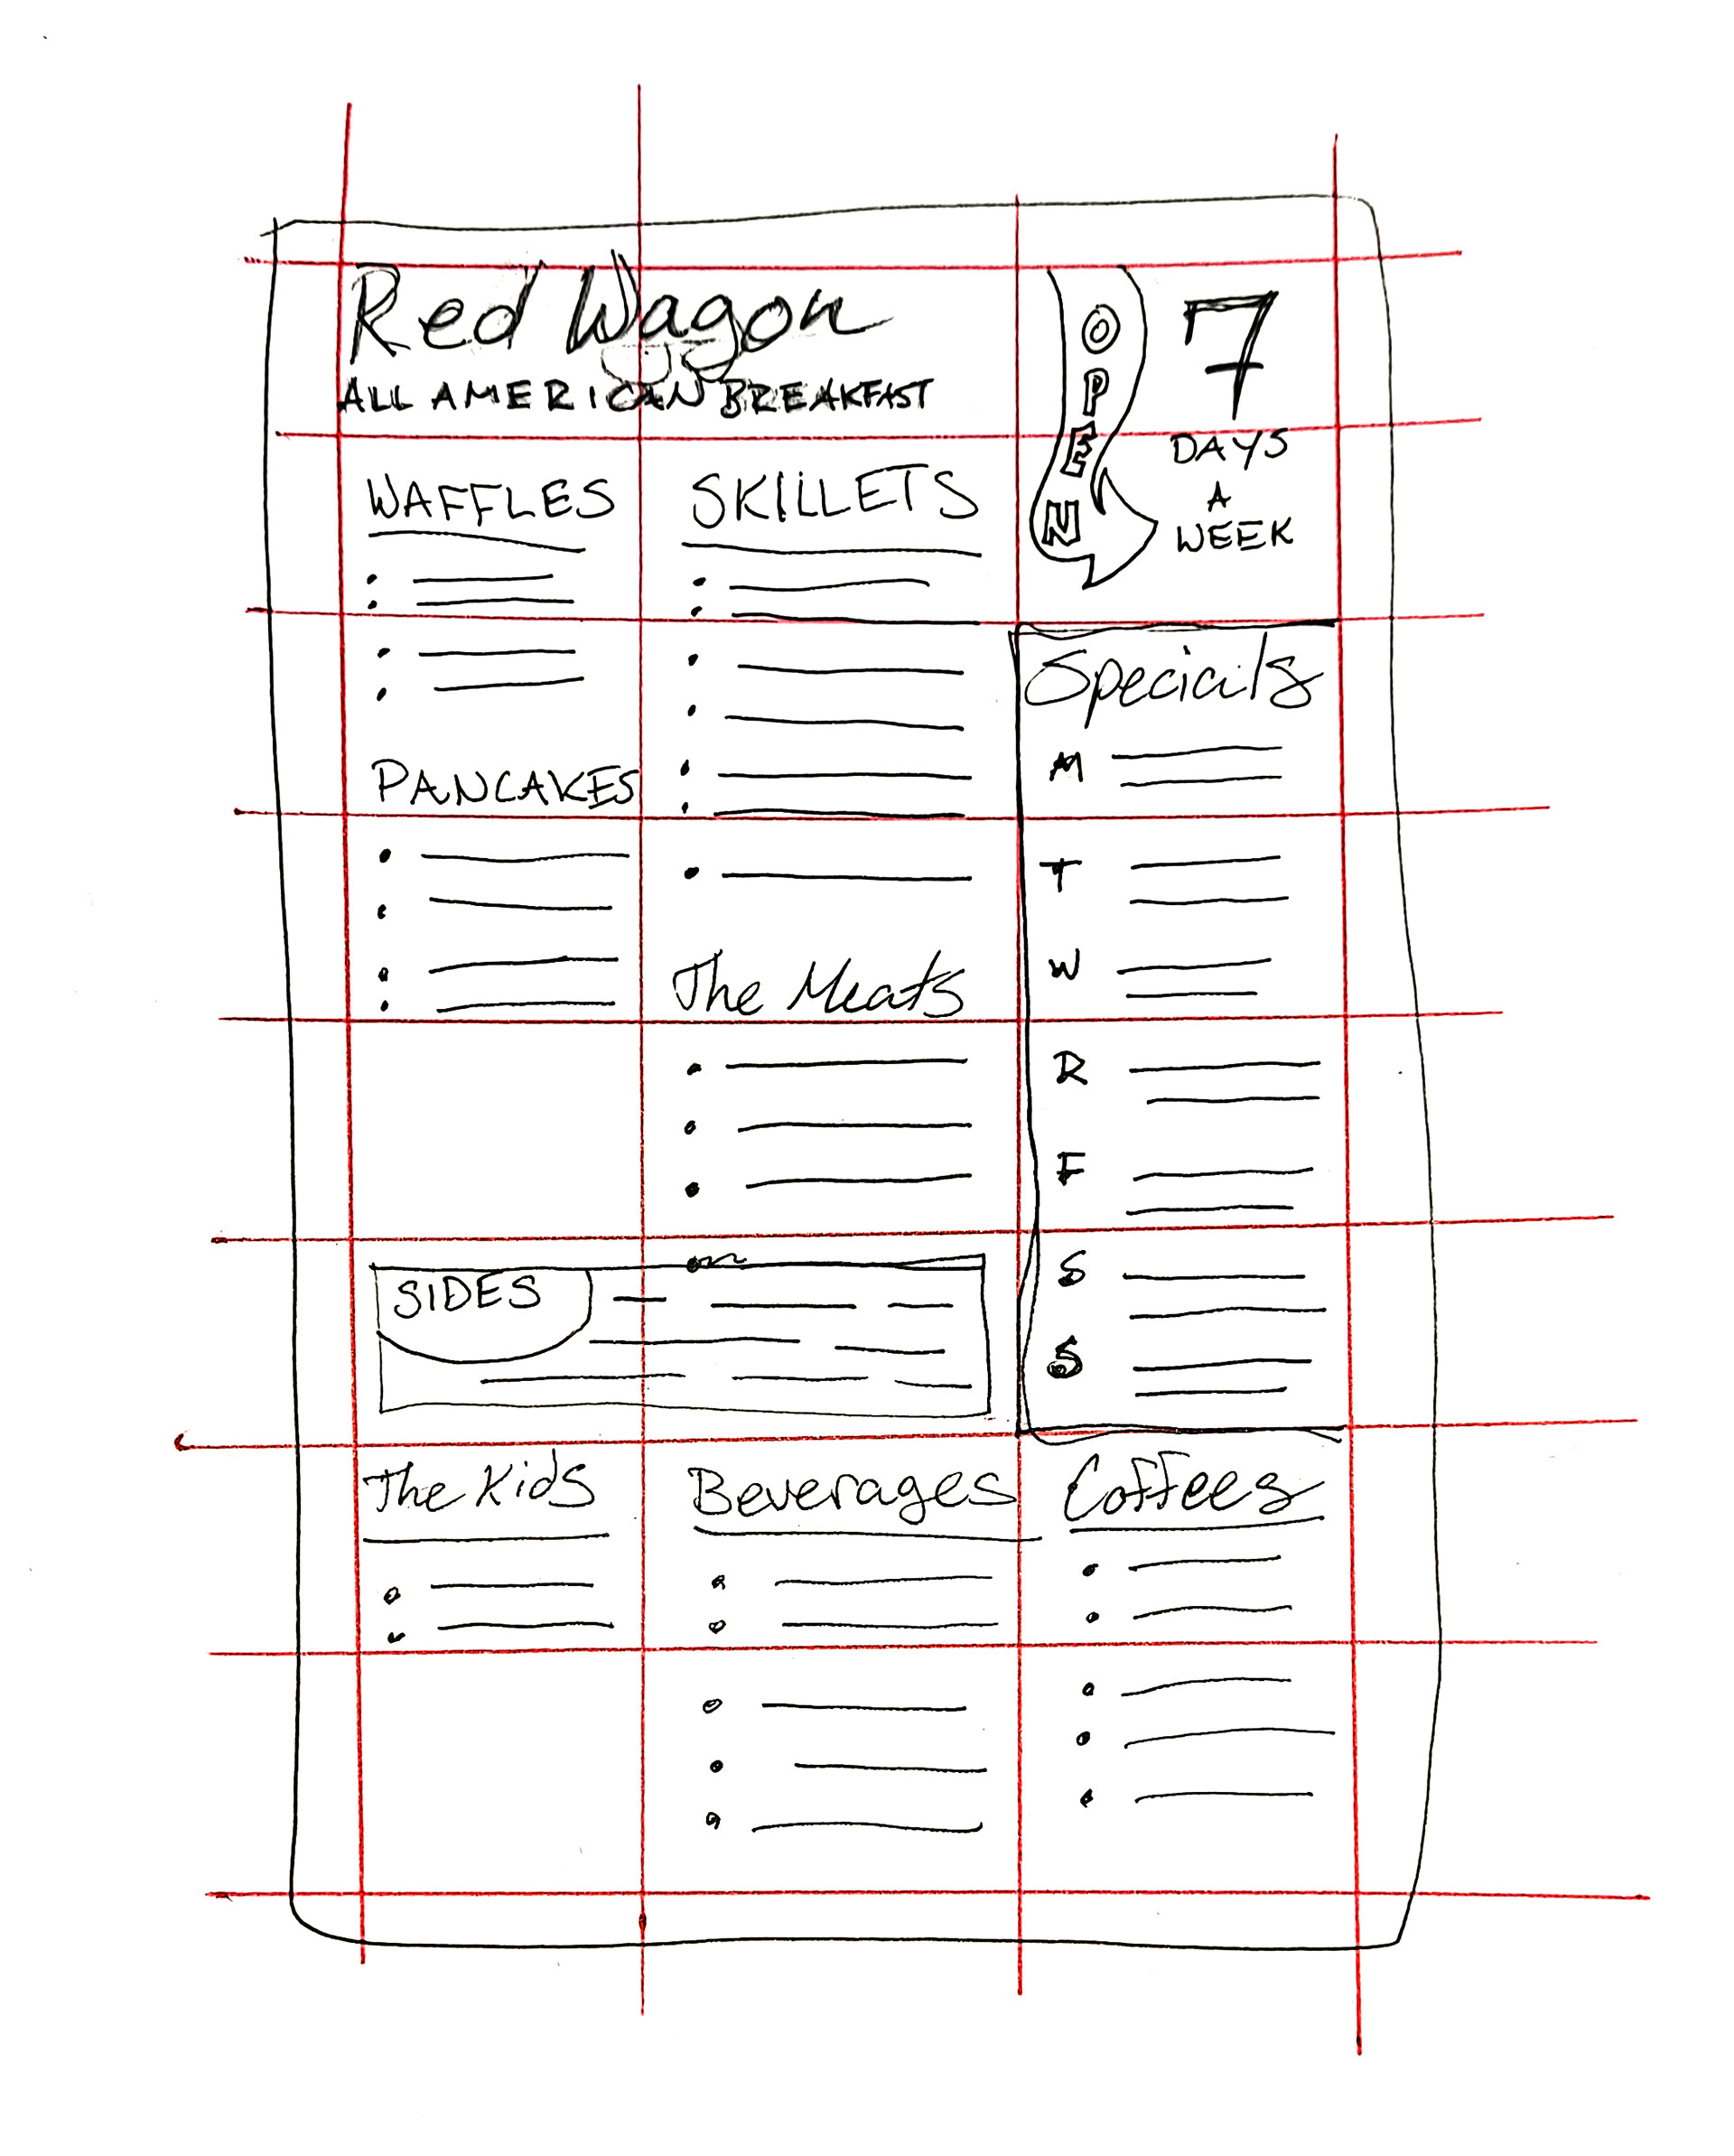 Red Wagon
ALL AMERICAN BREAKFAST
OPEN
7
DAYS
A
WEEK
WAFFLES
SKILLETS
PANCAKES
The Meats
Specials
M
T
W
R
F
S
S
SIDES
The Kids
Beverages
Coffees